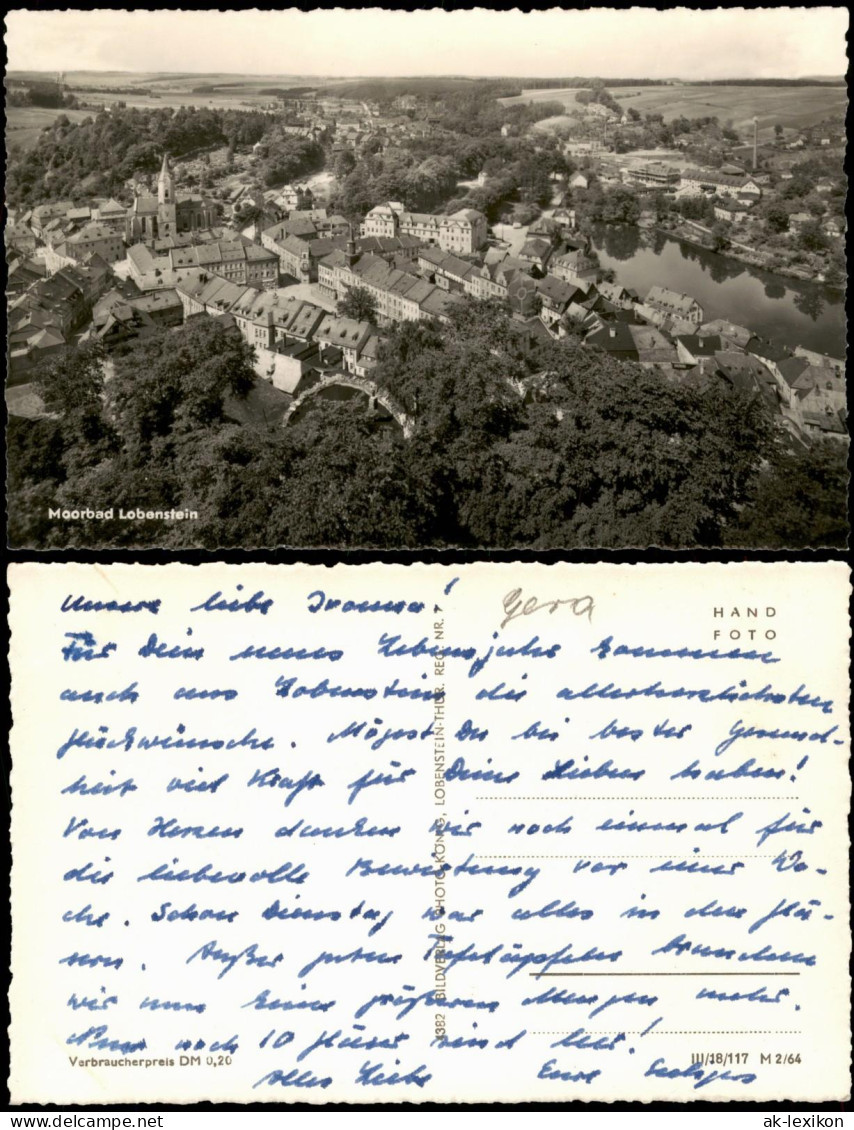 Moorbad Lobenstein
Gera
HAND
FOTO
Unsere liebe Iromma!
Für Dein neues Lebensjahr kommen
auch aus Lobenstein die allerherzlichsten
Glückwünsche. Mögest Du bei bester Gesund-
heit viel Kraft für Deine Lieben haben!
Von Herzen danken wir noch einmal für
die liebevolle Bewirtung vor einer Wo-
che. Schon Dienstag war alles in den Glä-
sern. Außer guten Tafeläpfeln brauchen
wir nun keine größeren Mengen mehr.
Nur noch 10 Gläser sind leer!
Alles Liebe Eure
4382 BILDVERLAG PHOTO-KÖNIG, LOBENSTEIN-THÜR. REG. NR. 7
Verbraucherpreis DM 0,20
III/18/117 M 2/64
ak-lexikon
ak-lexikon.com